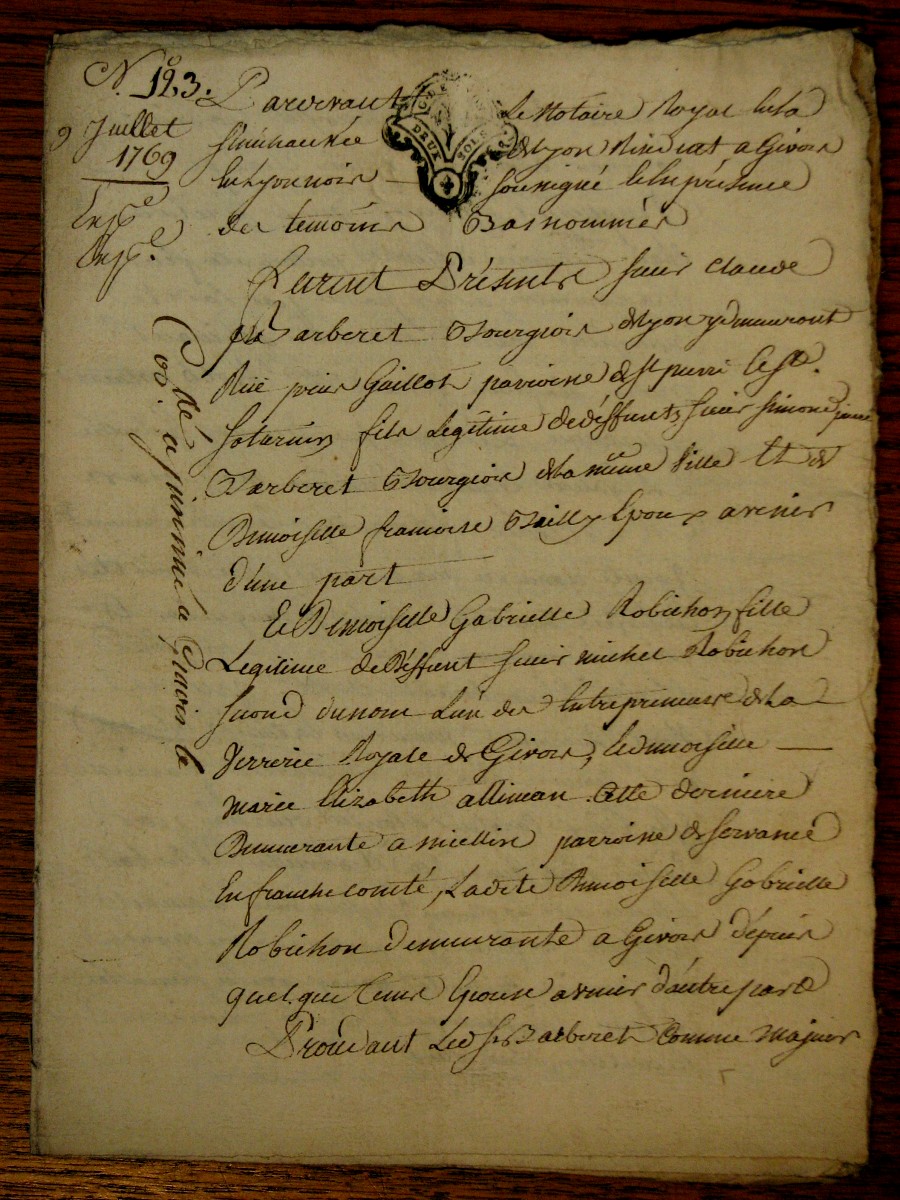 N.° 123.
9 Juillet
1769
Exp.é
Exp.é
Pardevant Le Notaire Royal en la
Sénéchaussée de Lyon Résidant a Givors
en Lyonnois soussigné et en présence
des temoins Bas nommés
GEN DE
DEUX SOLS
Furent Présents sieur Claude
Barberet Bourgeois de Lyon y demeurant
Rüe pierre Gaillot parroisse de St pierre et St
Saturnin fils Legitime de déffunt sieur Simond
Barberet Bourgeois de la même Ville Et de
Demoiselle francoise Bailly Epoux avenir
d'une part
Et Demoiselle Gabrielle Robichon fille
Legitime de Déffunt sieur michel Robichon
second du nom L'un des Entrepreneurs de La
Verrerie Royale de Givors, et demoiselle
marie Elizabeth allimean cette derniere
Demeurante a miellin parroisse de servance
En franche comté, Ladite Demoiselle Gabrielle
Robichon demeurante a Givors dépuis
quelque tems Epouse avenir d'autre part
Procedant Led. Sr Barberet Comme majeur
Coллé a Givors le